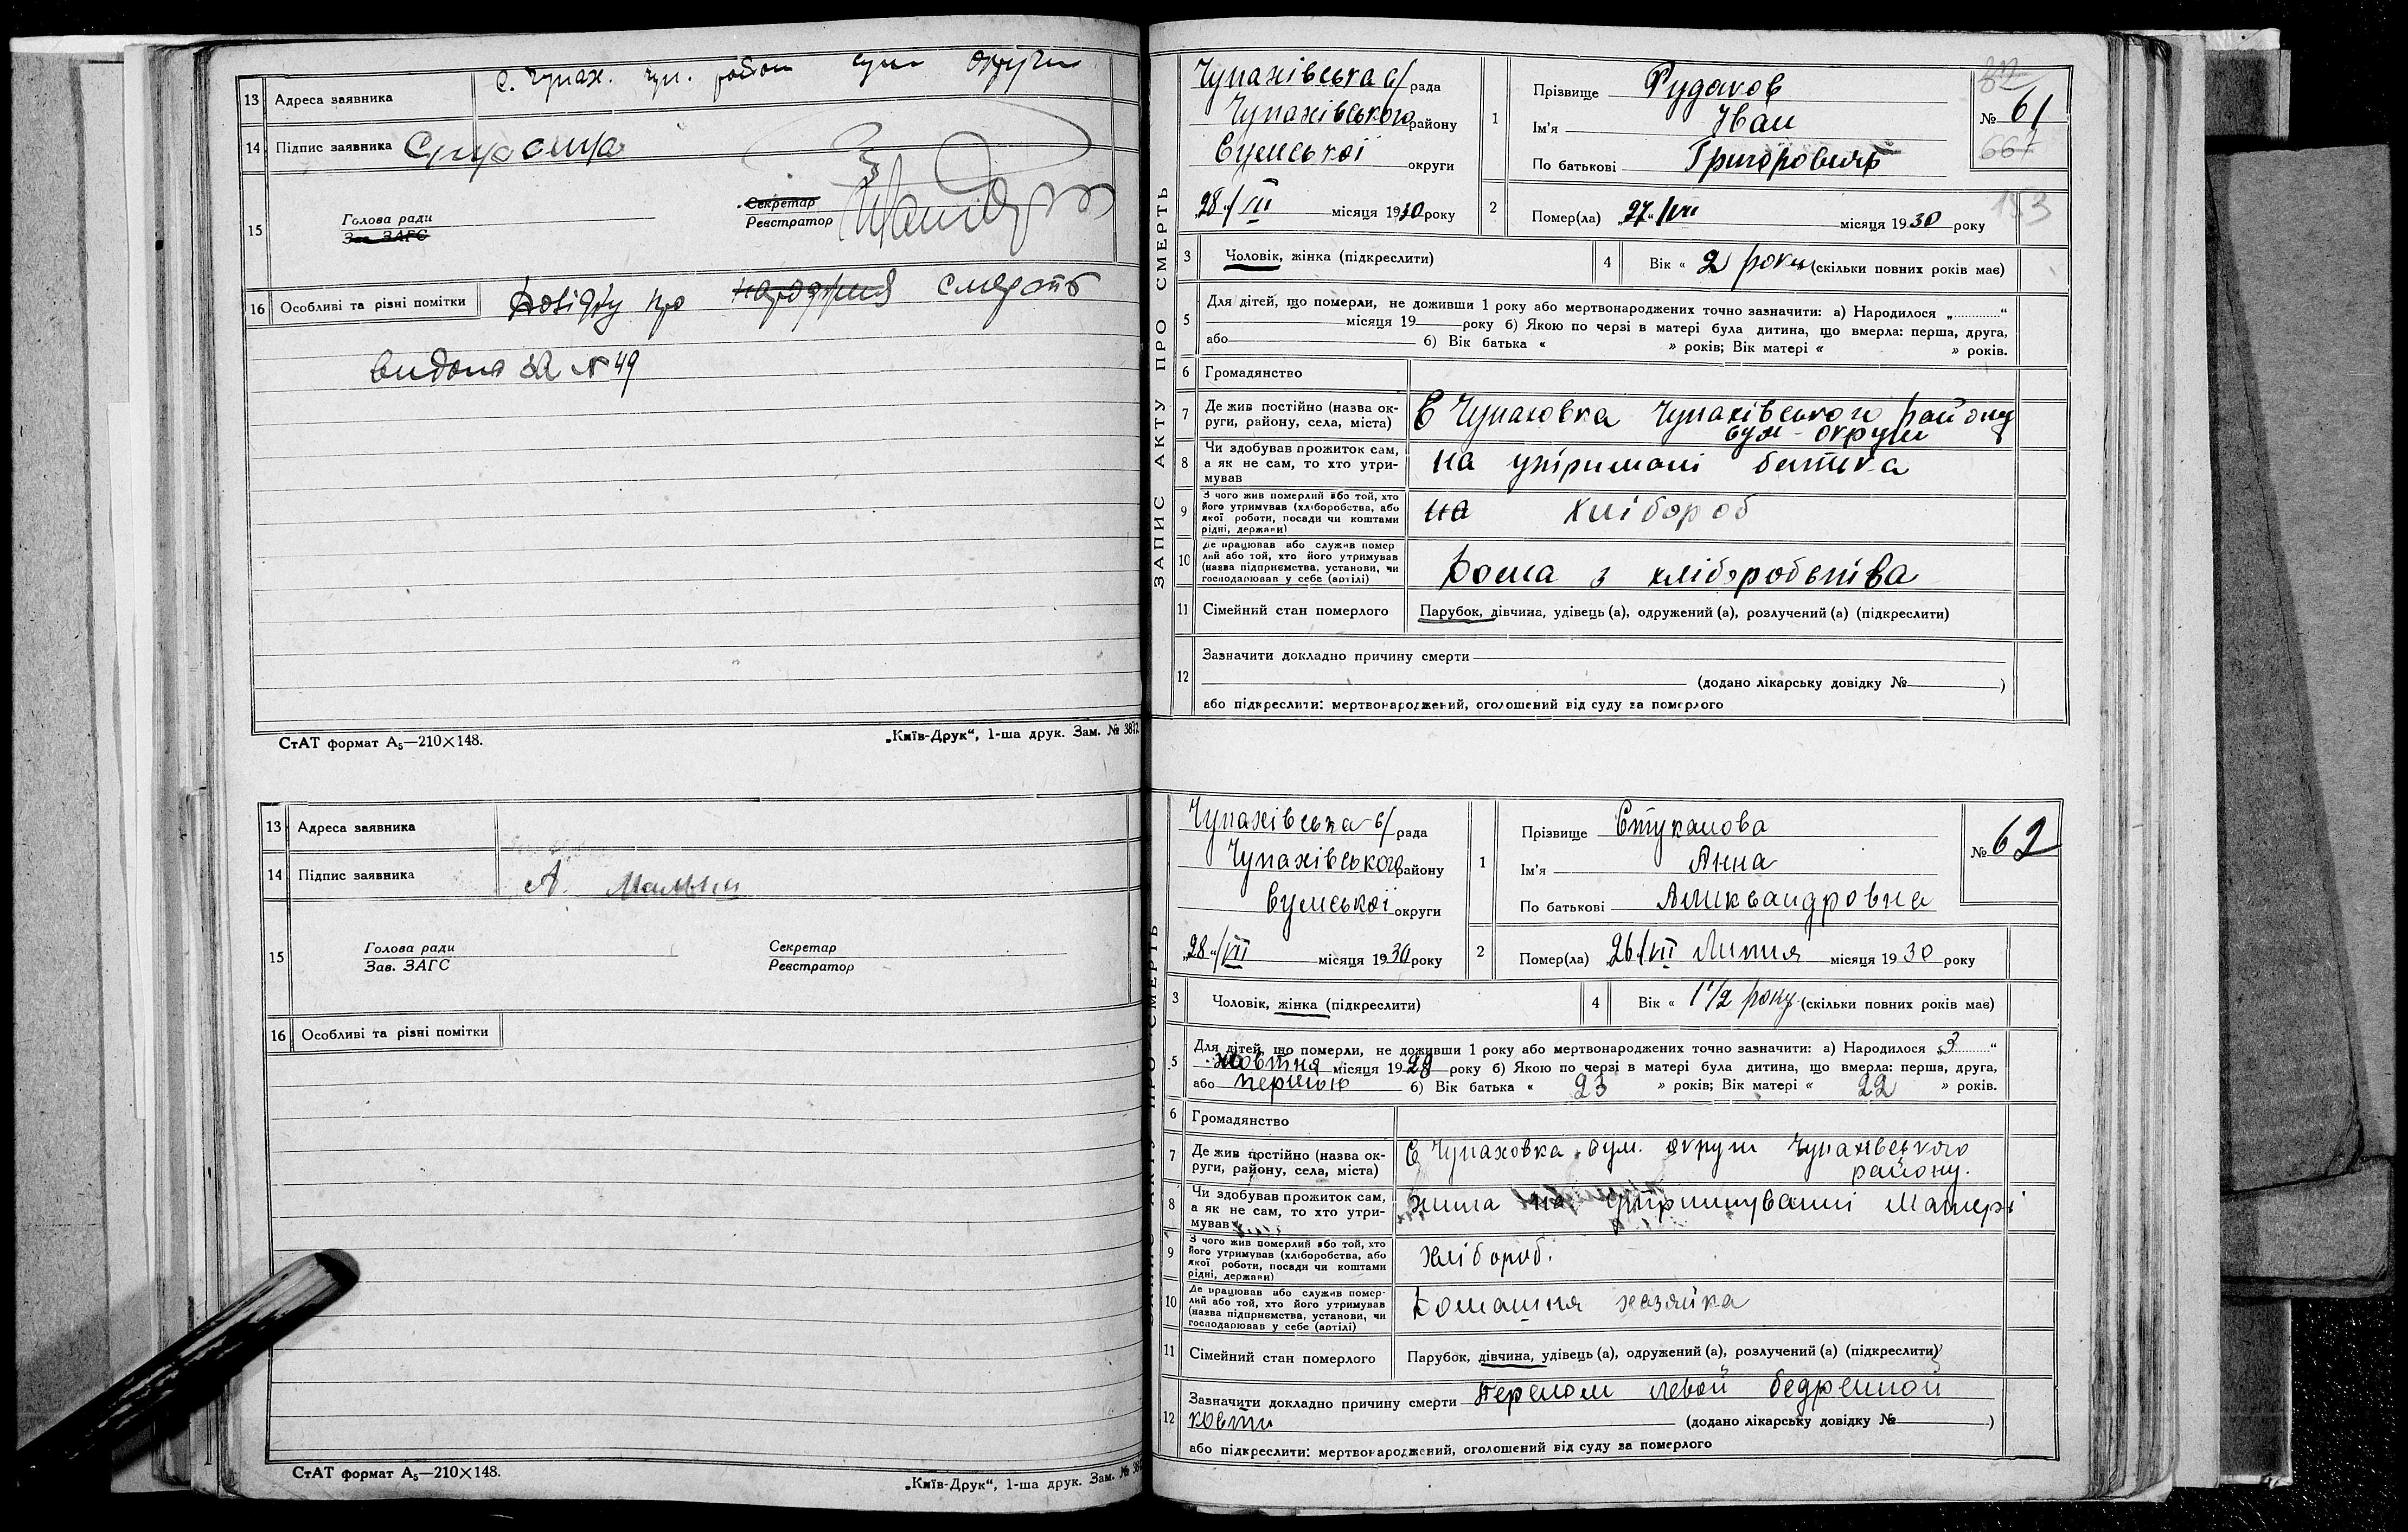 13 Адреса заявника с. Чупах. чуп. район сум округи
14 Підпис заявника
15 Голова ради
Зав. ЗАГС
Секретар
Реєстратор
16 Особливі та різні помітки Довідку про народження смерть
видана за № 49
СтАТ формат А5—210×148. „Київ-Друк“, 1-ша друк. Зам. № 3872
13 Адреса заявника
14 Підпис заявника А.
15 Голова ради
Зав. ЗАГС
Секретар
Реєстратор
16 Особливі та різні помітки
СтАТ формат А5—210×148. „Київ-Друк“, 1-ша друк. Зам. №
ЗАПИС АКТУ ПРО СМЕРТЬ
Чупахівська с/рада
Чупахівського району
Сумської округи
„28“/VII місяця 1930 року
1 Прізвище Рудаков
Ім'я Іван
По батькові Григоровичь
№ 61
667
153
2 Помер(ла) „27“/VII місяця 1930 року
3 Чоловік, жінка (підкреслити)
4 Вік « 2 роки (скільки повних років має)
5 Для дітей, що померли, не доживши 1 року або мертвонароджених точно зазначити: а) Народилося „............“
місяця 19 року б) Якою по черзі в матері була дитина, що вмерла: перша, друга,
або б) Вік батька « » років; Вік матері « » років.
6 Громадянство
7 Де жив постійно (назва ок-
руги, району, села, міста) С Чупаховка Чупахівського району
сум - округи
8 Чи здобував прожиток сам,
а як не сам, то хто утри-
мував на утримані батька
9 З чого жив померлий або той, хто
його утримував (хліборобства, або
якої роботи, посади чи коштами
рідні, держави) на хлібороб
10 Де працював або служив помер
лий або той, хто його утримував
(назва підприємства, установи, чи
господарював у себе (артілі) Дома з хліборобства
11 Сімейний стан померлого Парубок, дівчина, удівець (а), одружений (а), розлучений (а) (підкреслити)
12 Зазначити докладно причину смерти
(додано лікарську довідку № )
або підкреслити: мертвонароджений, оголошений від суду за померлого
ЗАПИС АКТУ ПРО СМЕРТЬ
Чупахівська с/рада
Чупахівського району
Сумської округи
„28“/VII місяця 1930 року
1 Прізвище Стукалова
Ім'я Анна
По батькові Аликсандровна
№ 62
2 Помер(ла) „26“/VII Липня місяця 1930 року
3 Чоловік, жінка (підкреслити)
4 Вік « 1 1/2 року (скільки повних років має)
5 Для дітей, що померли, не доживши 1 року або мертвонароджених точно зазначити: а) Народилося „3.........“
жовтня місяця 1928 року б) Якою по черзі в матері була дитина, що вмерла: перша, друга,
або першою б) Вік батька « 23 » років; Вік матері « 22 » років.
6 Громадянство
7 Де жив постійно (назва ок-
руги, району, села, міста) С Чупаховка сум. округи Чупахівського
району.
8 Чи здобував прожиток сам,
а як не сам, то хто утри-
мував жила на утримуванні Матері
9 З чого жив померлий або той, хто
його утримував (хліборобства, або
якої роботи, посади чи коштами
рідні, держави) хлібороб.
10 Де працював або служив помер-
лий або той, хто його утримував
(назва підприємства, установи, чи
господарював у себе (артілі) Домашня хазяйка
11 Сімейний стан померлого Парубок, дівчина, удівець (а), одружений (а), розлучений (а) (підкреслити)
12 Зазначити докладно причину смерти Перелом левой бедренной
кости (додано лікарську довідку № )
або підкреслити: мертвонароджений, оголошений від суду за померлого